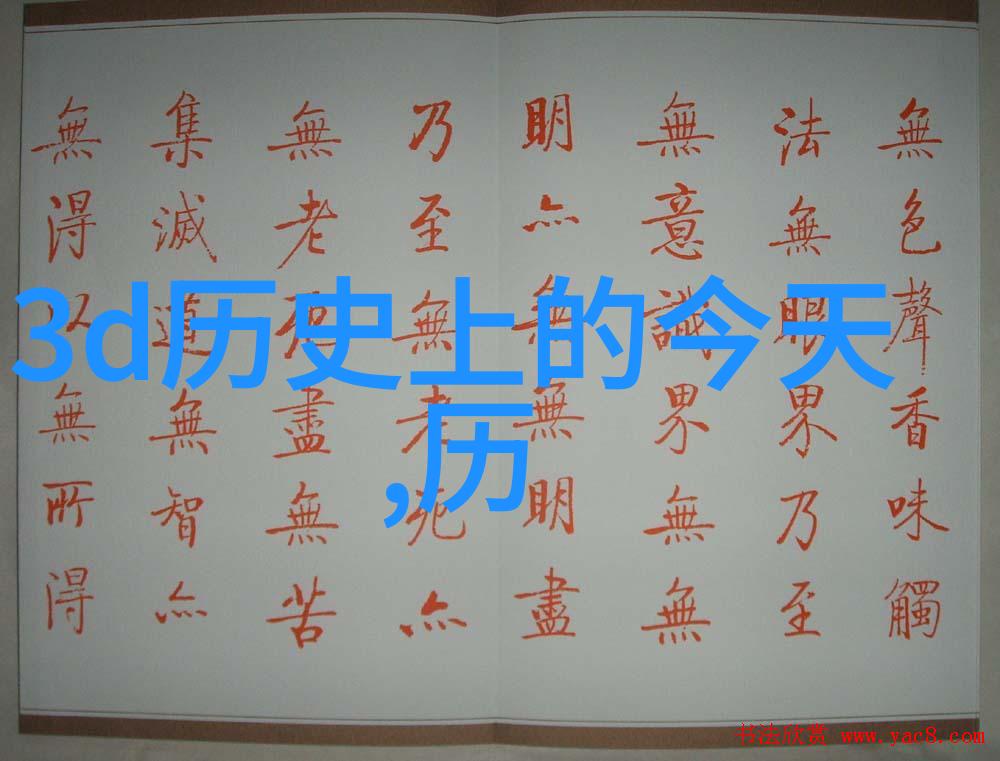 無色聲香味觸
法無眼界乃至
無意識界無無
明亦無無明盡
乃至無老死亦
無老死盡無苦
集滅道無智亦
無得以無所得
3d历史上的今天
,历
书法欣赏 www.yac8.com